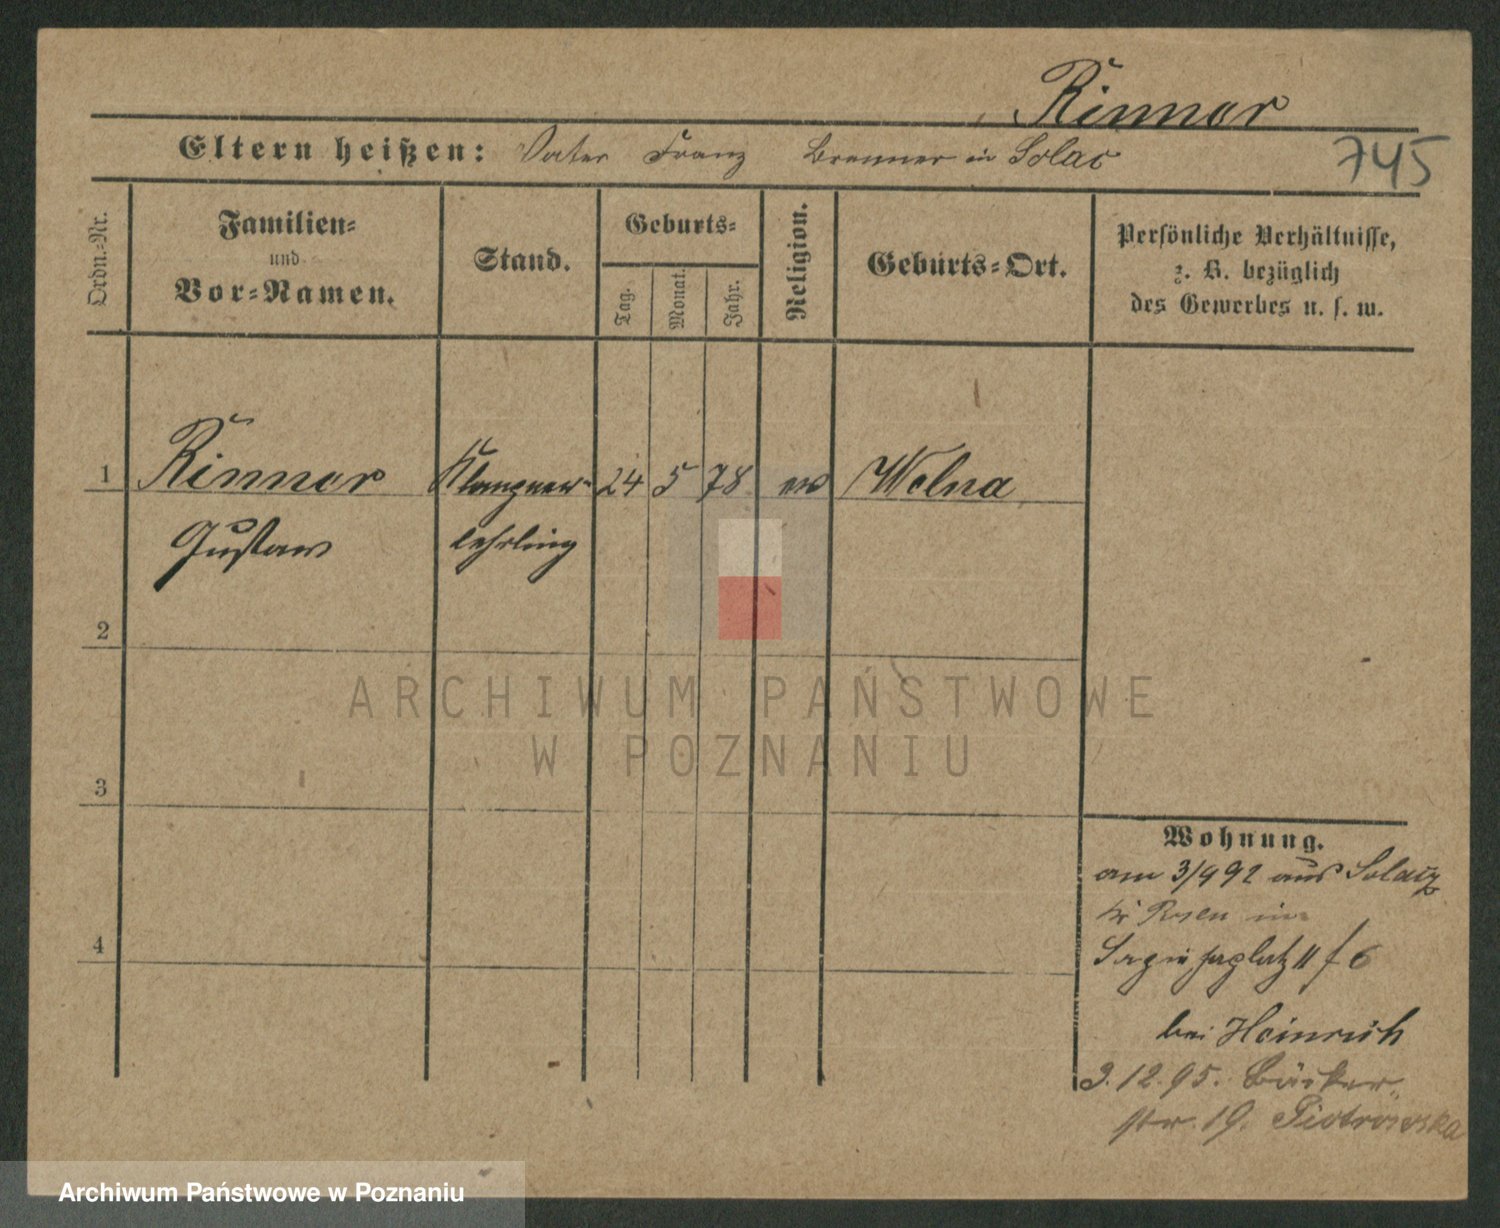 Rinner
745
Eltern heißen: Vater Franz Brenner in Solac
Ordn.-Nr.
Familien-
und
Vor-Namen.
Stand.
Geburts-
Tag.
Monat.
Jahr.
Religion.
Geburts-Ort.
Persönliche Verhältnisse,
z. B. bezüglich
des Gewerbes u. s. w.
1 Rinner Klempner- 24 5 78 ev Welna
Gustav lehrling
2
3
4
ARCHIWUM PAŃSTWOWE
W POZNANIU
Wohnung.
am 3/9 92 aus Solacz
in
Sapiehaplatz 11 f 6
bei Heinrich
3.12.95. Bäcker
str. 19. Piotrowska
Archiwum Państwowe w Poznaniu